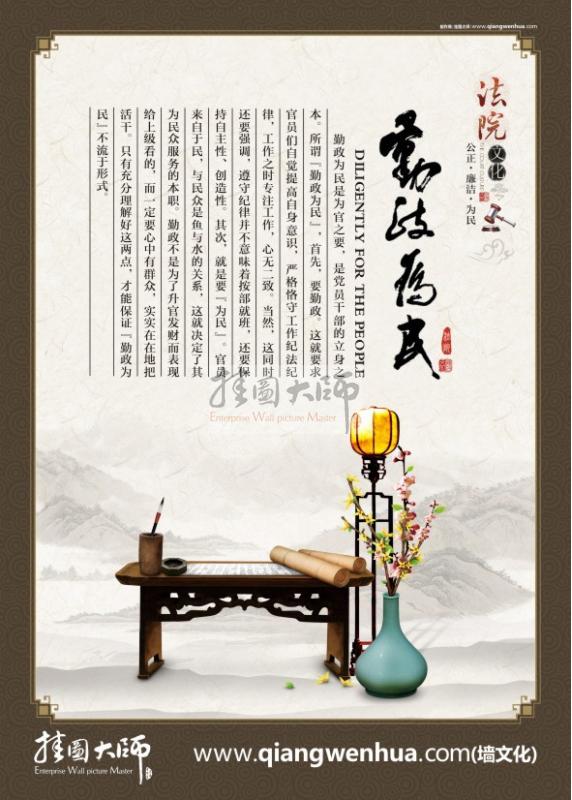 法院文化
公正·廉洁·为民
勤政为民
DILIGENTLY FOR THE PEOPLE
勤政为民是为官之要，是党员干部的立身之
本。所谓『勤政为民』，首先，要勤政。这就要求
官员们自觉提高自身意识，严格恪守工作纪法纪
律，工作之时专注工作，心无二致。当然，这同时
还要强调，遵守纪律并不意味着按部就班，还要保
持自主性、创造性。其次，就是要『为民』。官员
来自于民，与民众是鱼与水的关系，这就决定了其
为民众服务的本职。勤政不是为了升官发财而表现
给上级看的，而一定要心中有群众，实实在在地把
活干。只有充分理解好这两点，才能保证『勤政为
民』不流于形式。
挂图大师
Enterprise Wall picture Master
挂图大师
Enterprise Wall picture Master
www.qiangwenhua.com(墙文化)